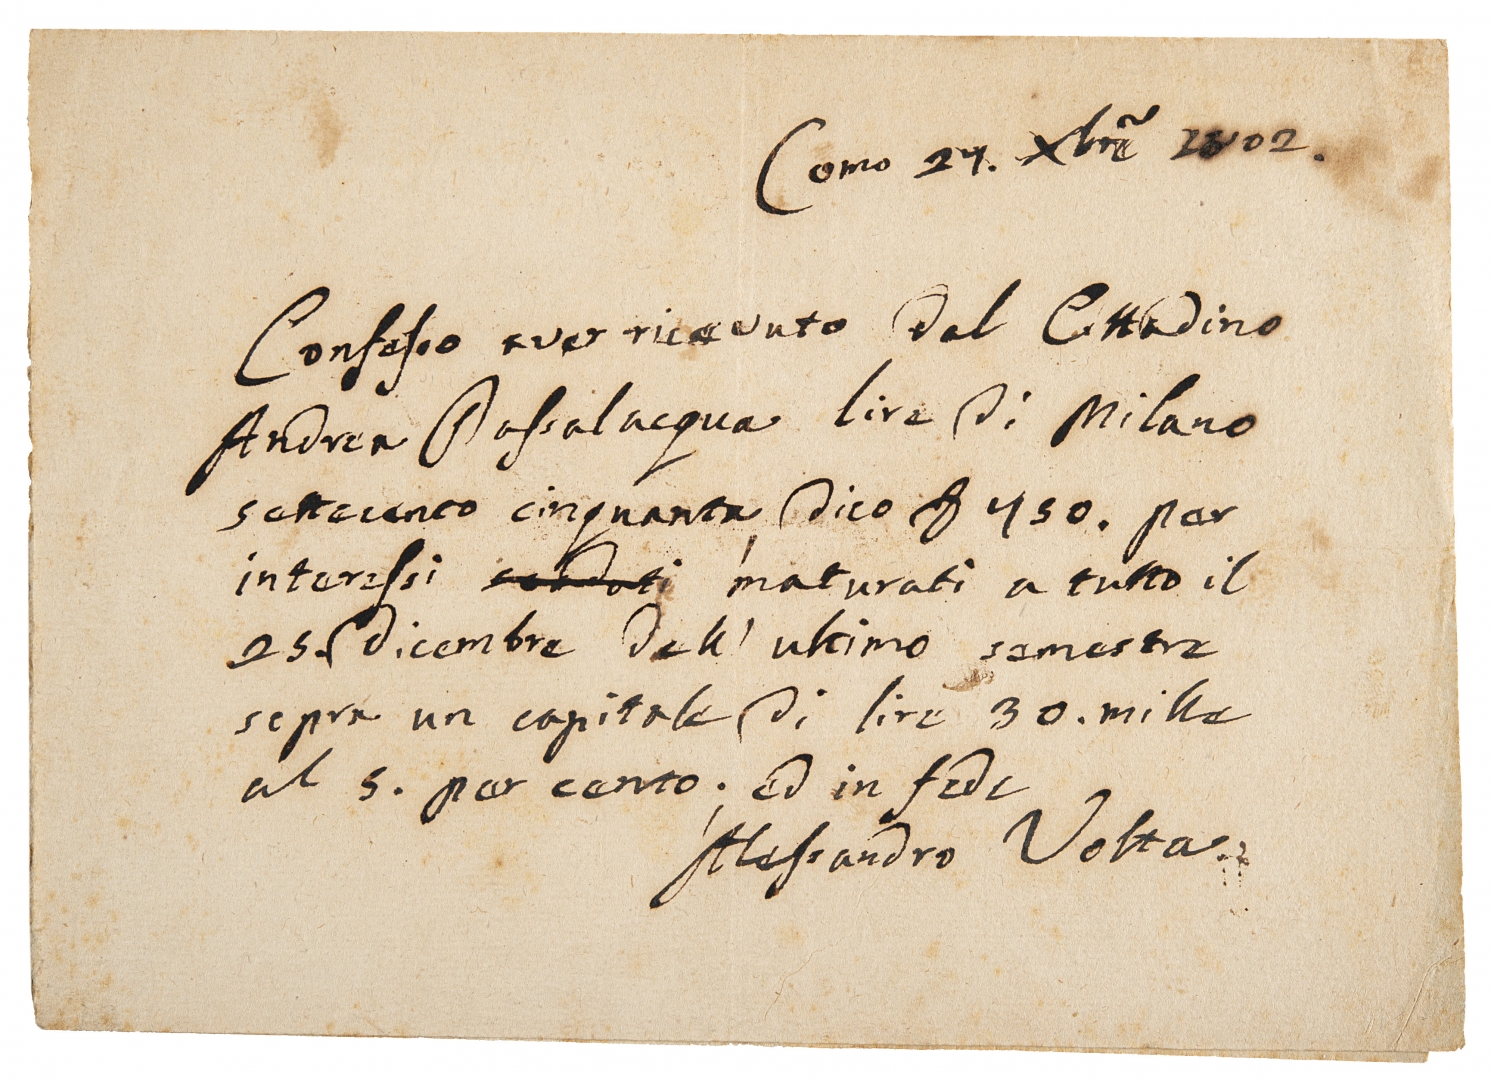 Como 27. Xbre 1802.
Confesso aver ricevuto dal Cittadino
Andrea Passalacqua lire di Milano
settecento cinquanta, dico £ 750. per
interessi scaduti maturati a tutto il
25. dicembre dell' ultimo semestre
sopra un capitale di lire 30. mille
al 5. per cento; ed in fede
Alessandro Volta.